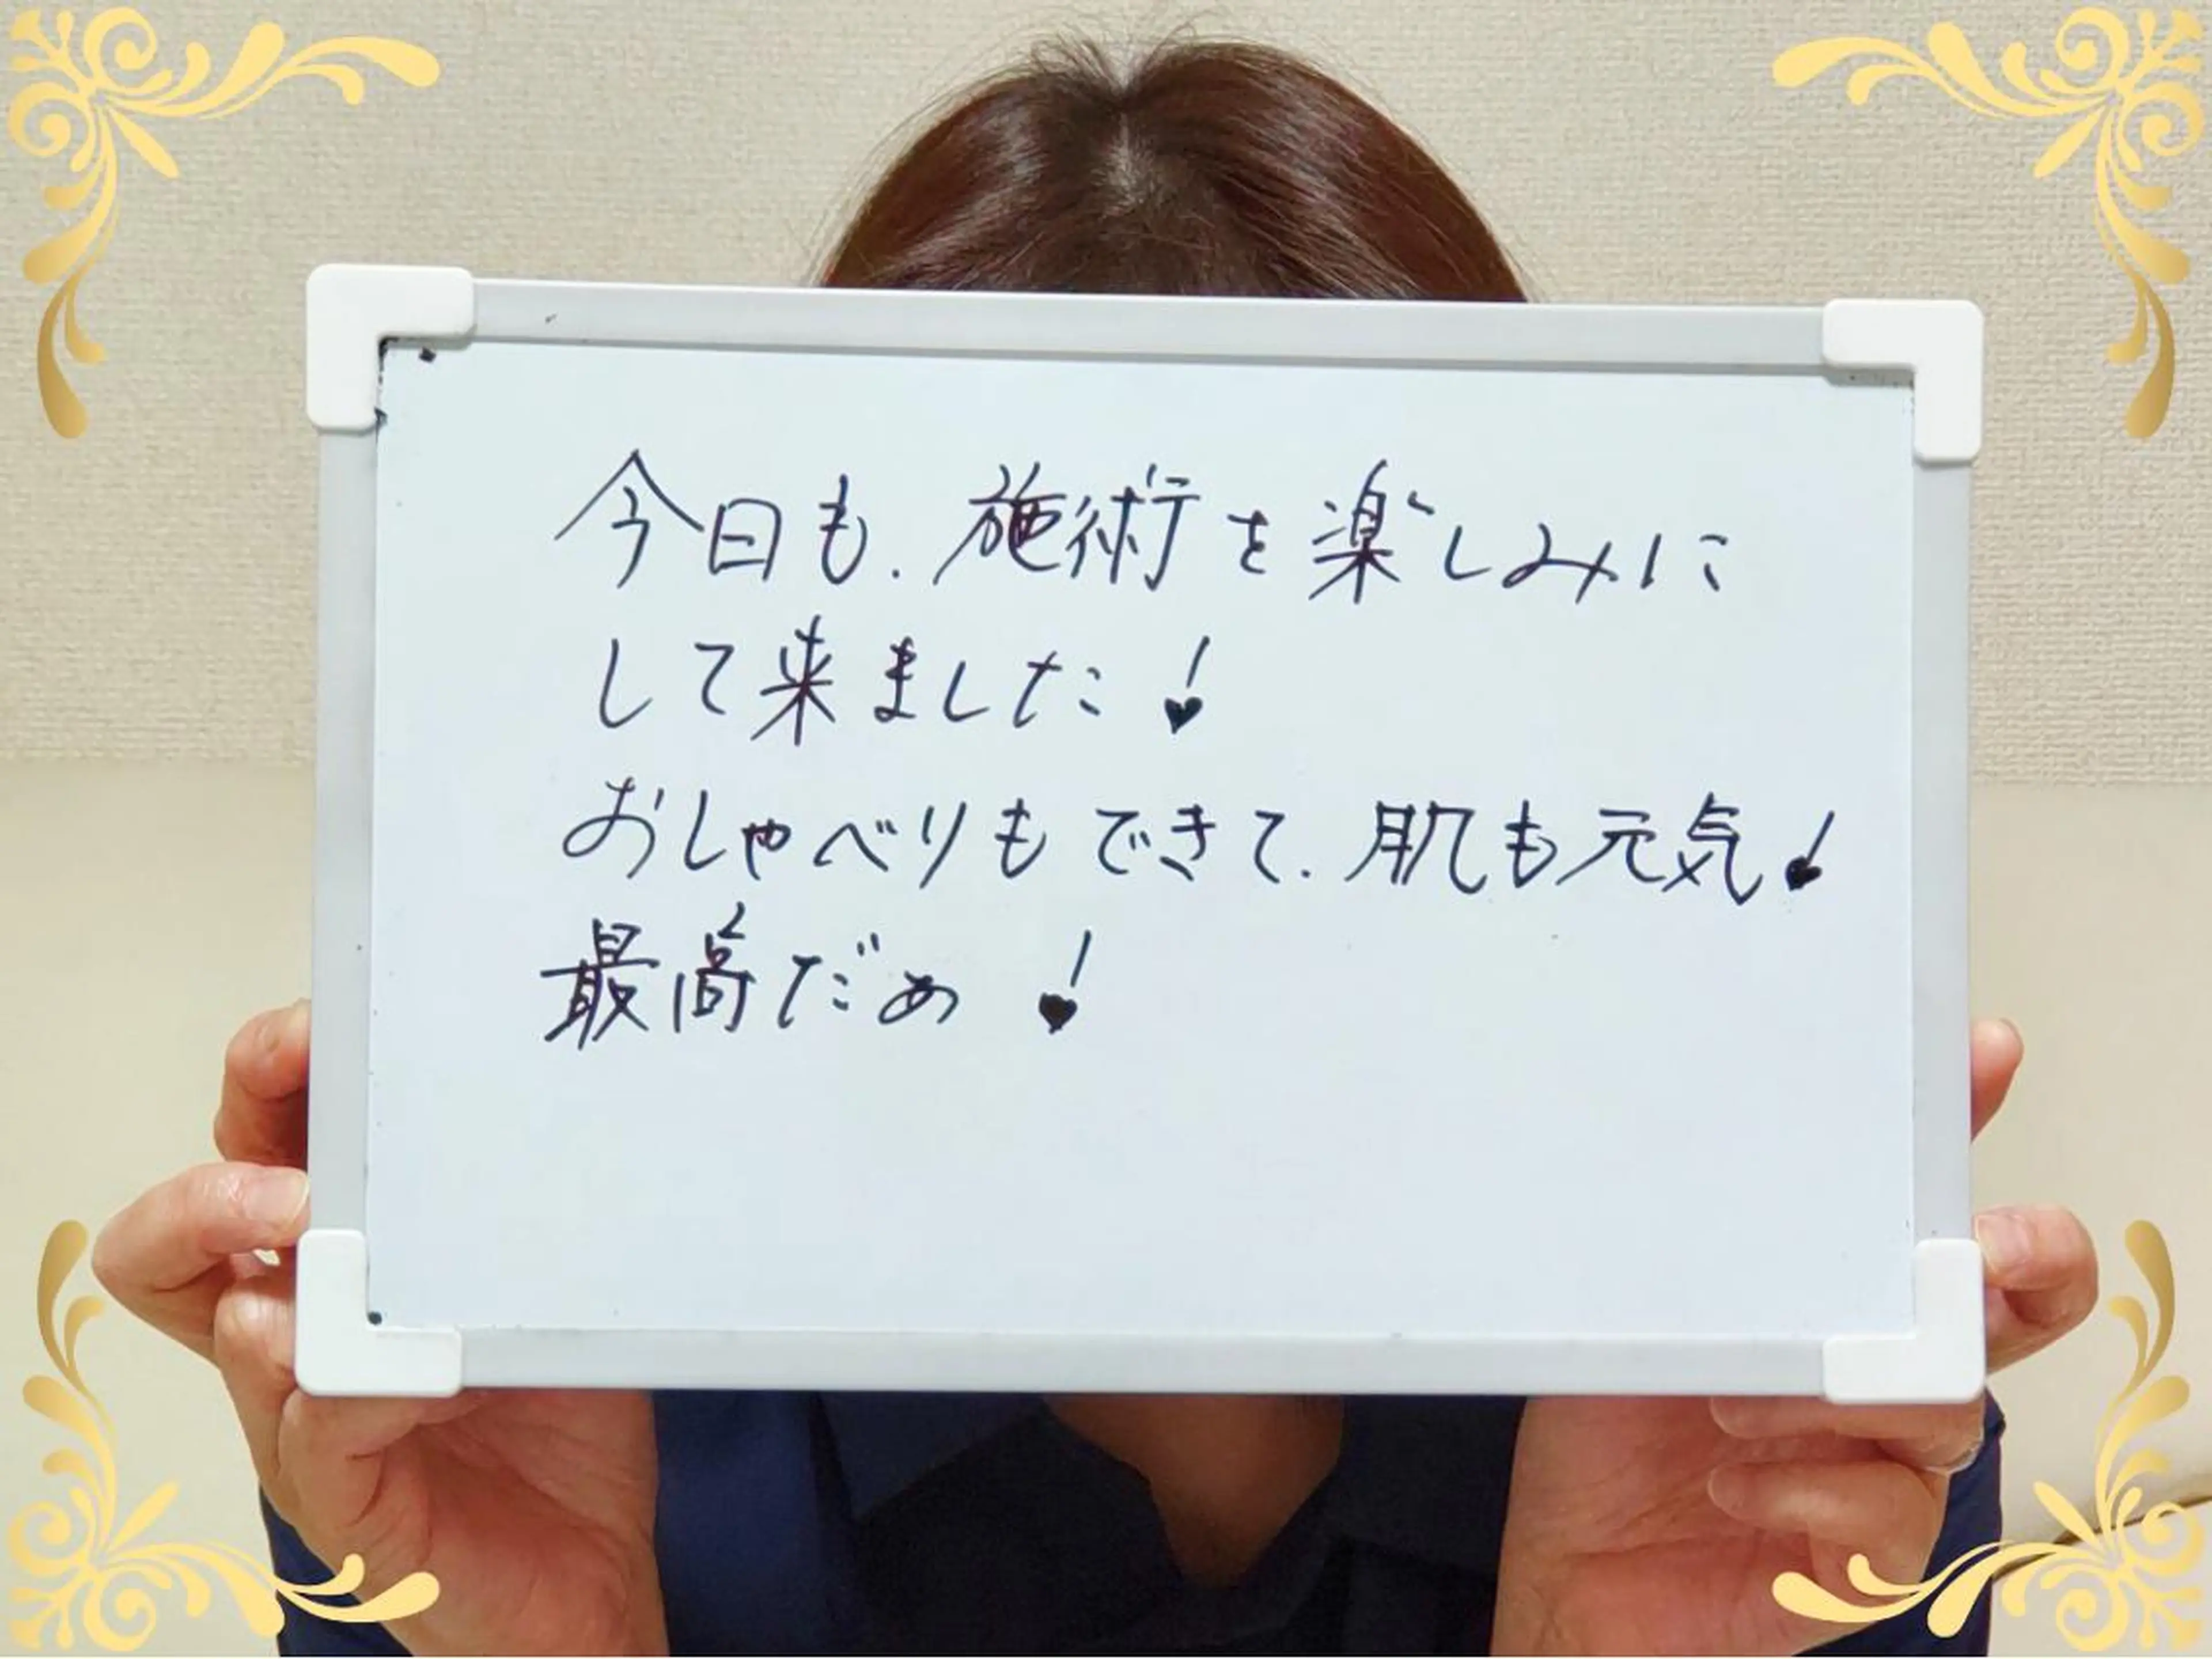 今日も.施術を楽しみに
して来ました!
おしゃべりもできて.肌も元気!
最高だぁ!